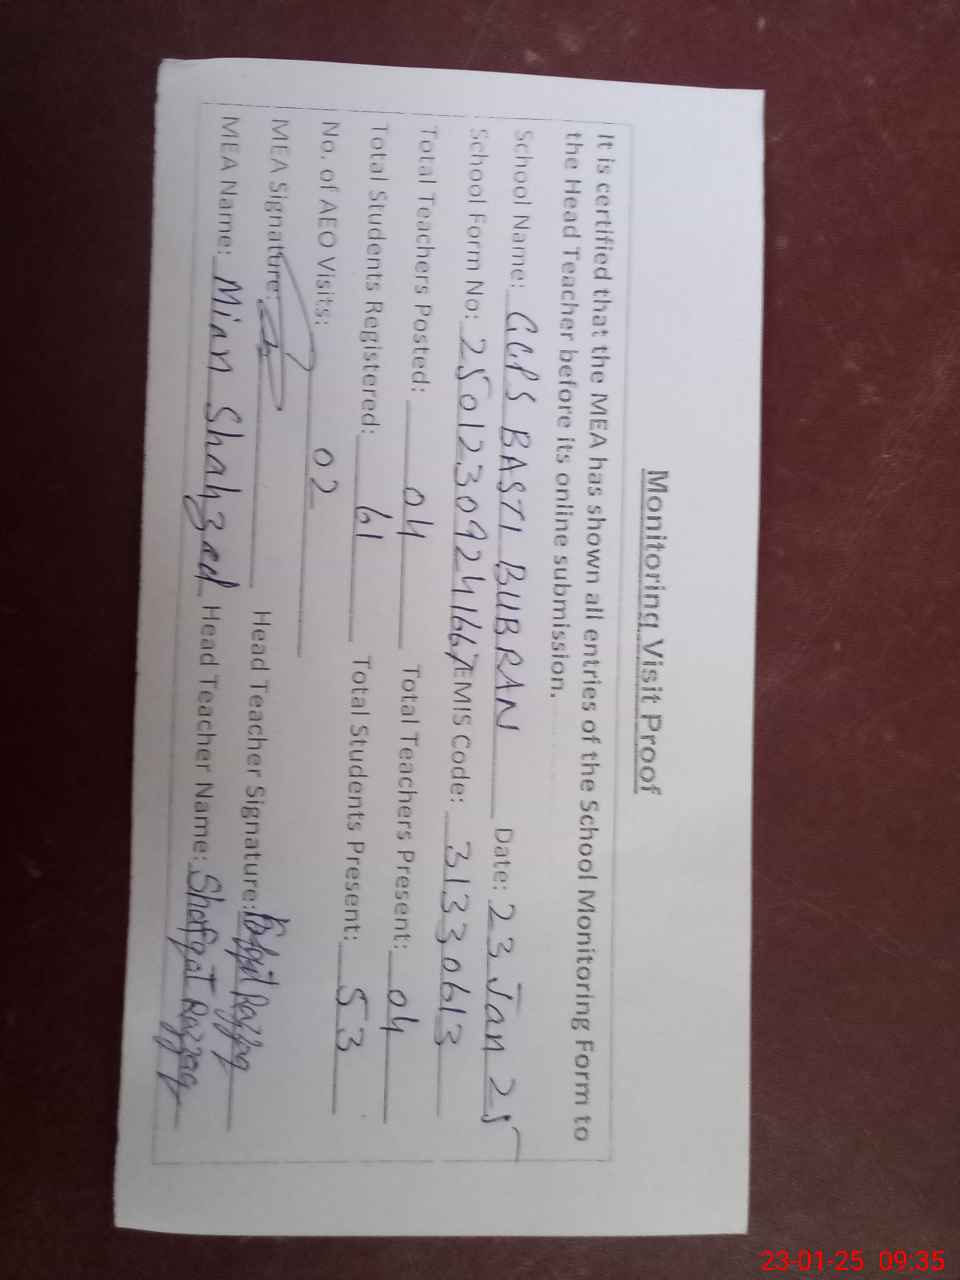 Monitoring Visit Proof
It is certified that the MEA has shown all entries of the School Monitoring Form to
the Head Teacher before its online submission.
School Name: GGPS BASTI BUBRAN Date: 23 Jan 25
School Form No: 25012309241667 EMIS Code: 31330613
Total Teachers Posted: 04 Total Teachers Present: 04
Total Students Registered: 61 Total Students Present: 53
No. of AEO Visits: 02
MEA Signature: Head Teacher Signature: Razzaq
MEA Name: Mian Shahzad Head Teacher Name: Shafqat Razzaq
23-01-25 09:35